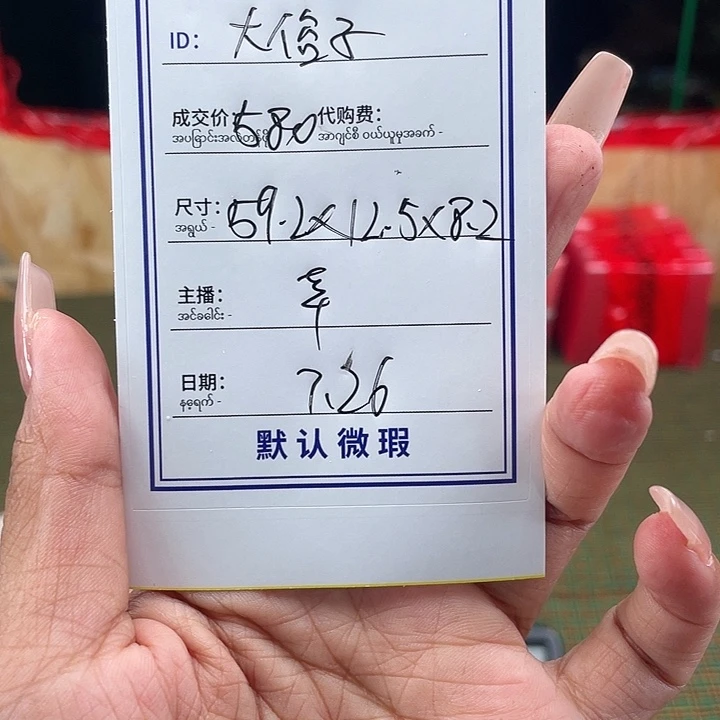 ID: 大俊子
成交价 580 代购费:
အပြောင်းအလဲတန်ဖိုး အာဂျင်စီ ဝယ်ယူမှုအခက် -
尺寸: 59.2×12.5×8.2
အရွယ် -
主播:
အင်ခေါင်း -
日期: 7.26
နေ့ရက် -
默认微瑕